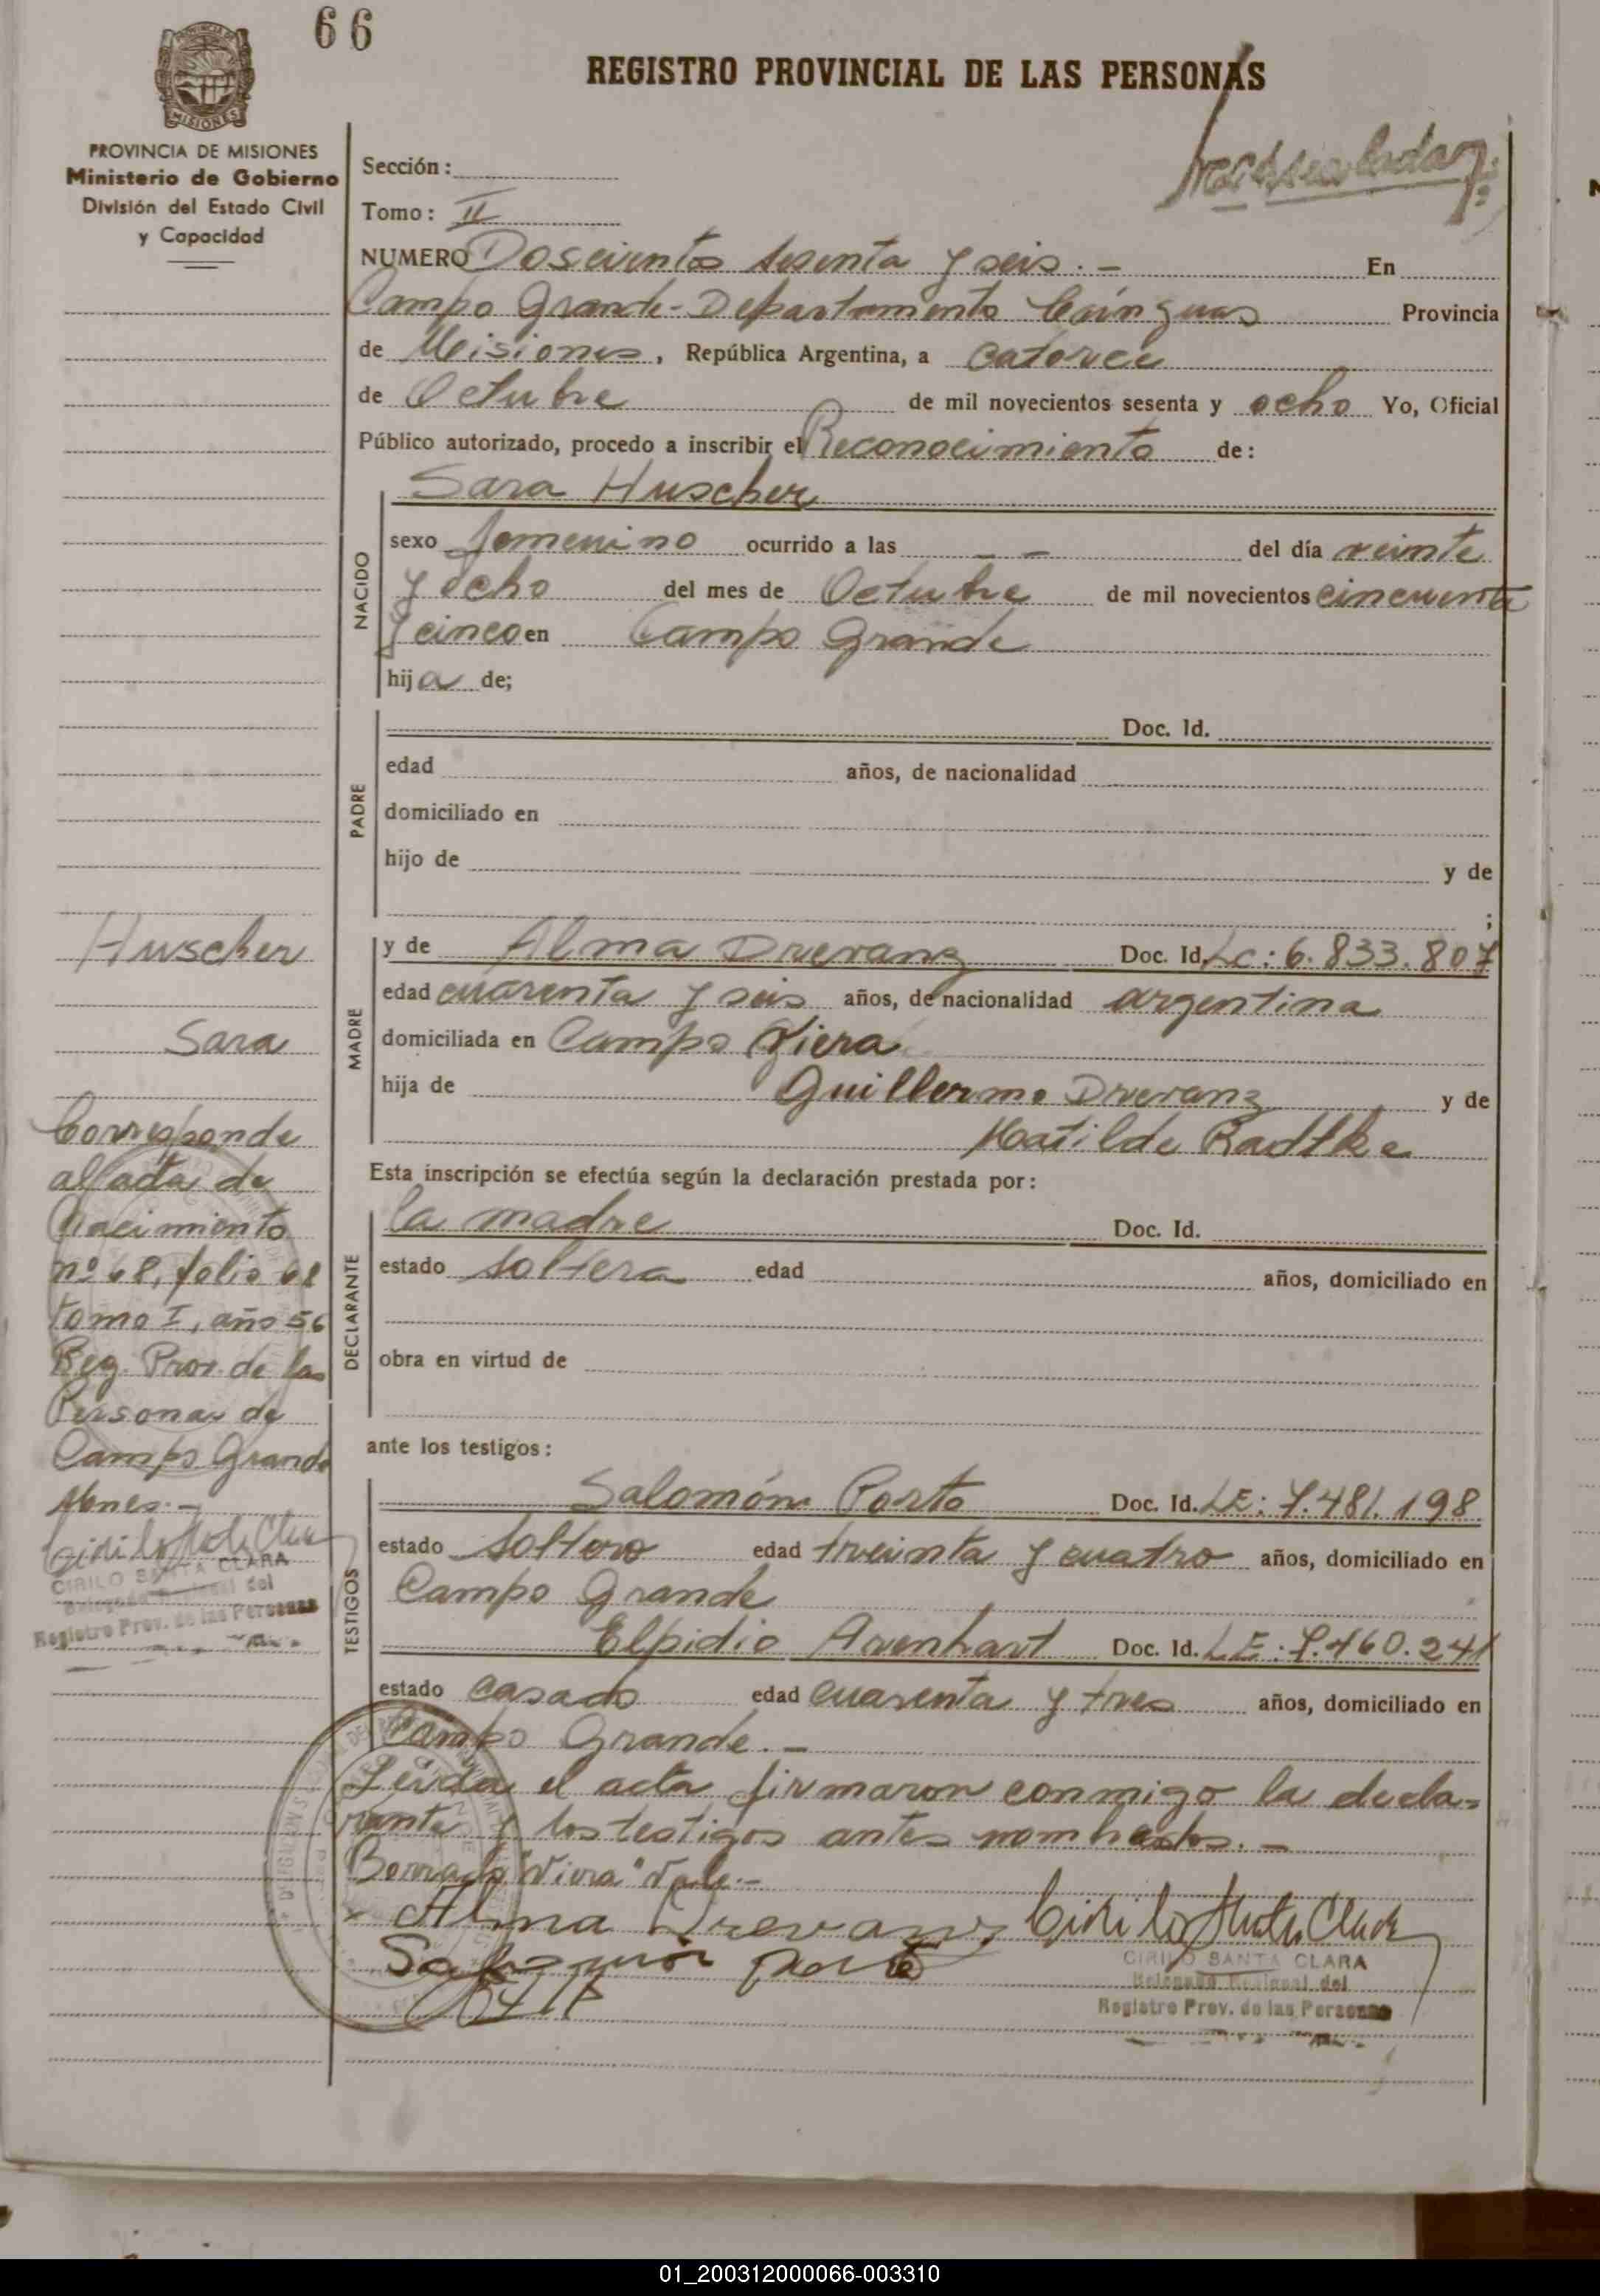 66
REGISTRO PROVINCIAL DE LAS PERSONAS
MISIONES
PROVINCIA DE MISIONES
Ministerio de Gobierno
División del Estado Civil
y Capacidad
Sección:
Tomo: II
NUMERO Doscientos sesenta y seis.- En
Campo Grande - Departamento Cainguas Provincia
de Misiones, República Argentina, a catorce
de Octubre de mil novecientos sesenta y ocho Yo, Oficial
Público autorizado, procedo a inscribir el Reconocimiento de:
Sara Huscher
NACIDO
sexo femenino ocurrido a las - - del día veinte
y ocho del mes de Octubre de mil novecientos cincuenta
y cinco en Campo Grande
hija de;
PADRE
Doc. Id.
edad años, de nacionalidad
domiciliado en
hijo de y de
;
MADRE
y de Alma Drevanz Doc. Id. LC: 6.833.807
edad cuarenta y seis años, de nacionalidad argentina
domiciliada en Campo Viera
hija de Guillermo Drevanz y de
Matilde Radtke
Esta inscripción se efectúa según la declaración prestada por:
DECLARANTE
la madre Doc. Id.
estado soltera edad años, domiciliado en
obra en virtud de
ante los testigos:
TESTIGOS
Salomón Porto Doc. Id. LE: 7.481.198
estado soltero edad treinta y cuatro años, domiciliado en
Campo Grande
Elpidio Avenhart Doc. Id. LE: 7.460.241
estado casado edad cuarenta y tres años, domiciliado en
Campo Grande.-
Leída el acta firmaron conmigo la decla-
rante y los testigos antes nombrados.-
Borrado "Viera" Vale.-
Alma Drevanz
CIRILO SANTA CLARA
Delegado Regional del
Registro Prov. de las Personas
Huscher
Sara
Corresponde
al acta de
Nacimiento
nº 68, folio 68
tomo I, año 56
Reg. Prov. de las
Personas de
Campo Grande
Mnes.-
CIRILO SANTA CLARA
Delegado Regional del
Registro Prov. de las Personas
01_200312000066-003310